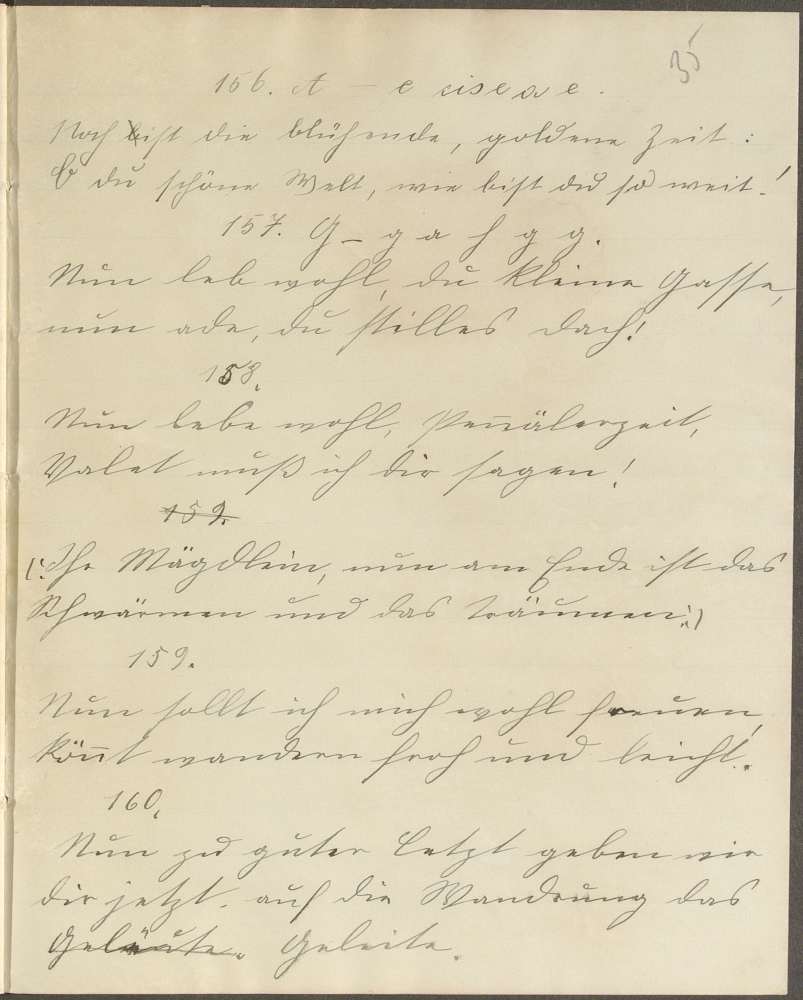 35
156. A – e cis e a e.
Noch ist die blühende, goldene Zeit:
O du schöne Welt, wie bist du so weit!
157. G – g a h g g.
Nun leb wohl, du kleine Gasse,
nun ade, du stilles Dach!
158.
Nun lebe wohl, Pennälerzeit,
Valet muß ich dir sagen!
159.
(: Ihr Mägdlein, nun am Ende ist das
Schwärmen und das Träumen :)
159.
Nun sollt ich mich wohl freuen,
könnt wandern froh und leicht.
160.
Nun zu guter Letzt geben wir
dir jetzt auf die Wandrung das
Geläute. Geleite.